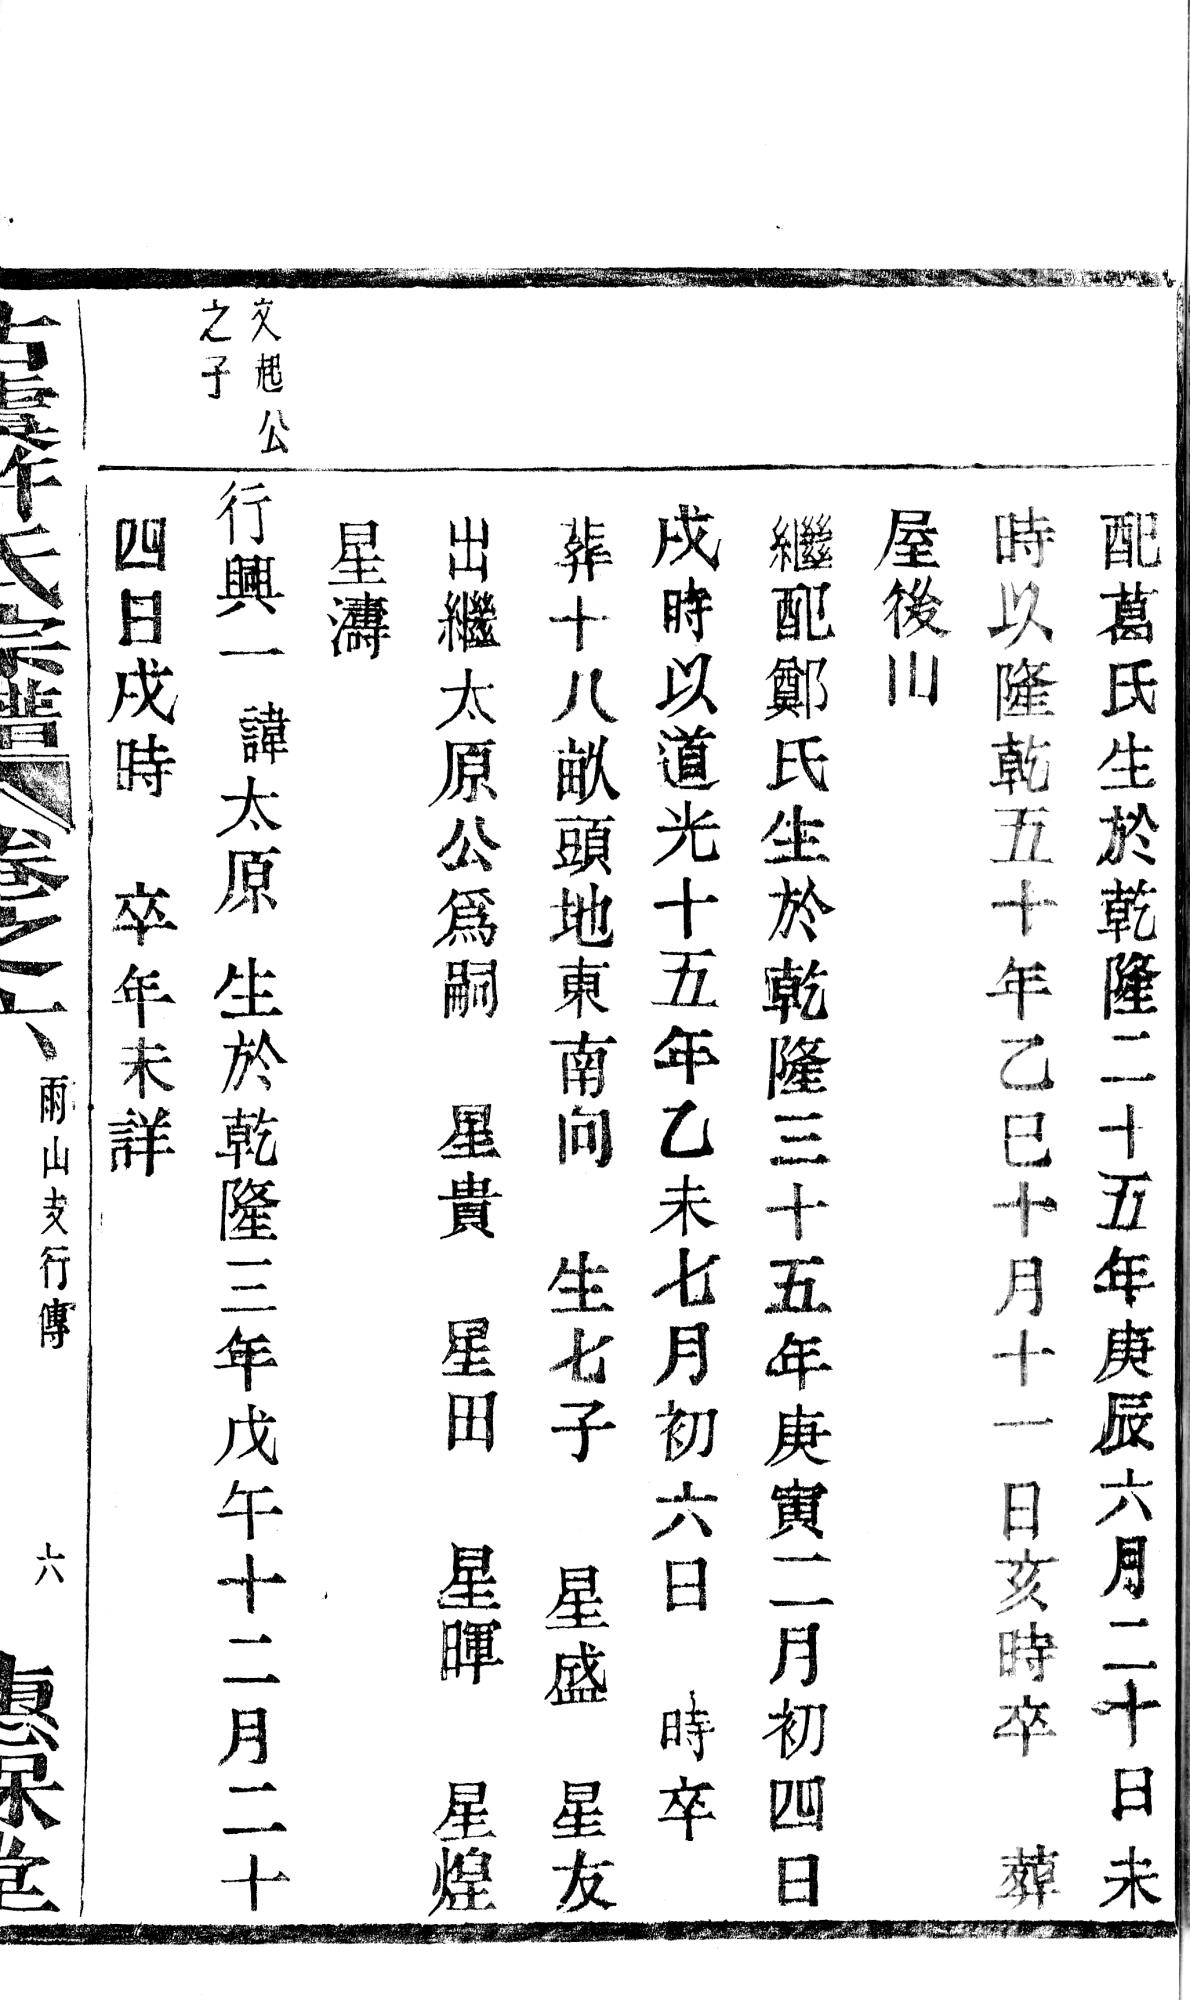 配葛氏生於乾隆二十五年庚辰六月二十日未
時以隆乾五十年乙巳十月十一日亥時卒　葬
屋後山
繼配鄭氏生於乾隆三十五年庚寅二月初四日
戌時以道光十五年乙未七月初六日　時卒
葬十八畝頭地東南向　生七子　星盛　星友
出繼太原公爲嗣　星貴　星田　星暉　星煌
星濤
文起公
之子
行興一　諱太原　生於乾隆三年戊午十二月二十
四日戌時　卒年未詳
古虞許氏宗譜　卷之十、　雨山支行傳　六　惠保堂